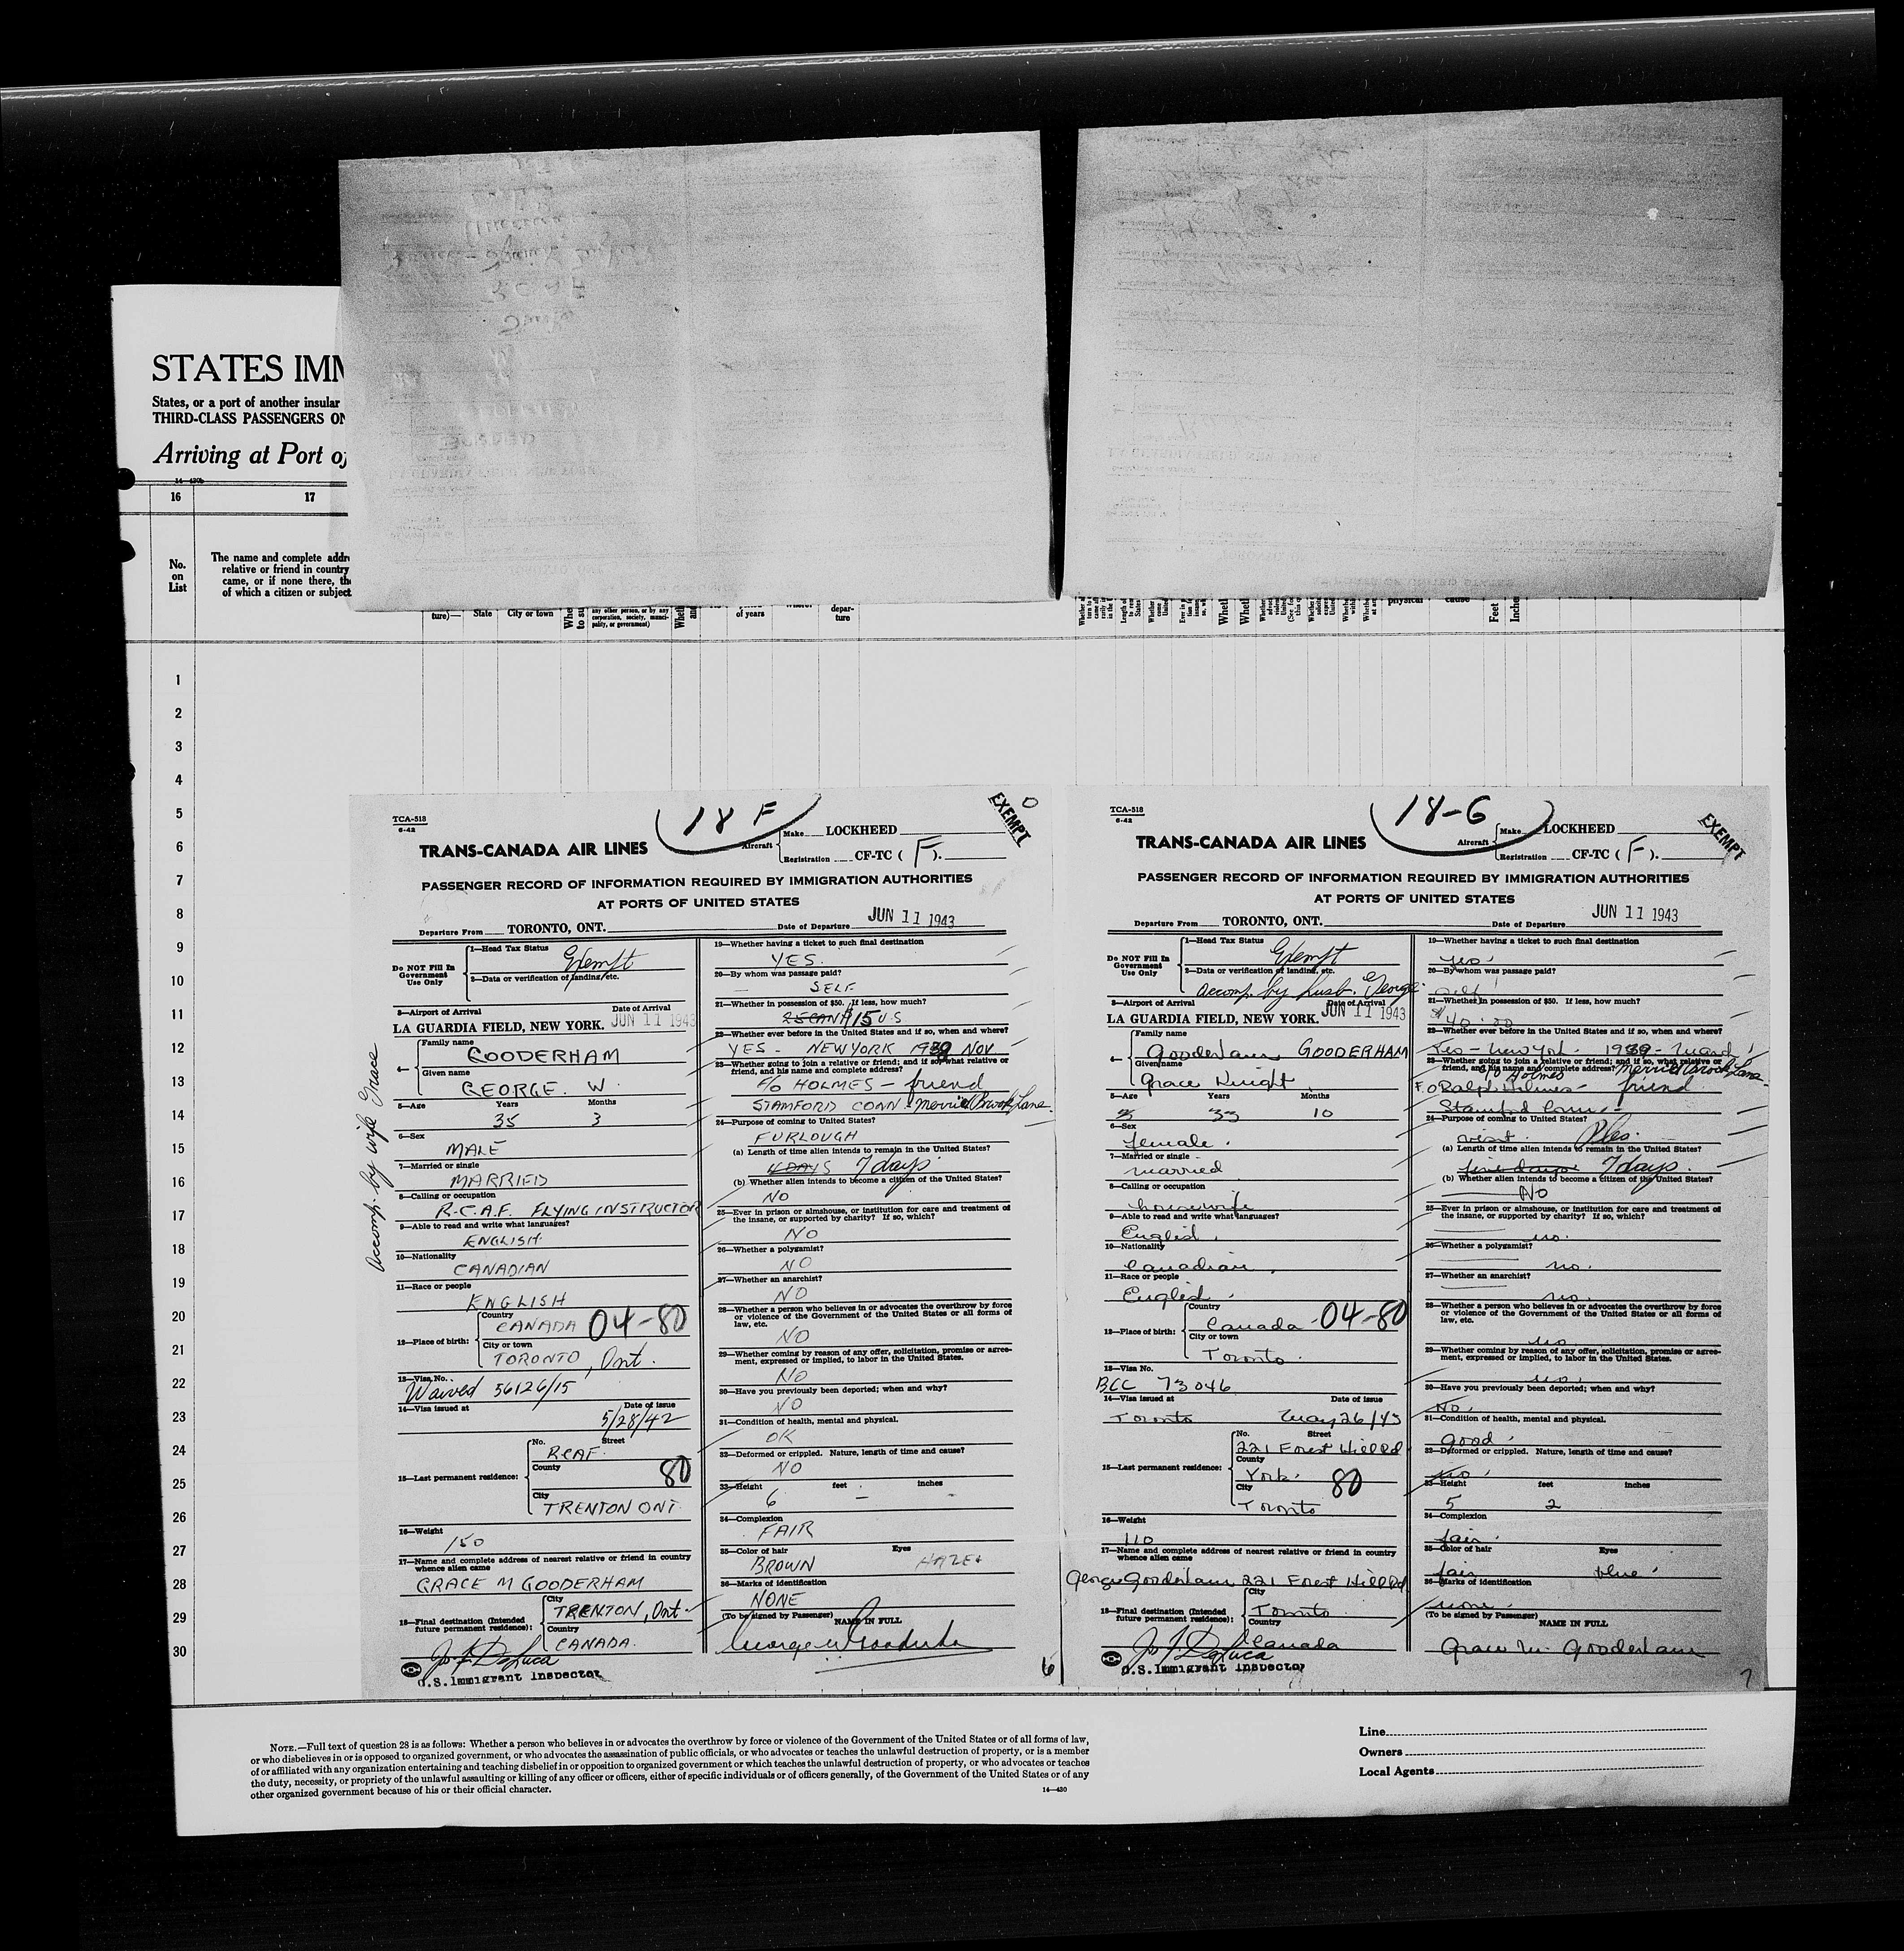 STATES IMM
States, or a port of another insular
THIRD-CLASS PASSENGERS ON
Arriving at Port of
14—430b
16 17
No. on List
The name and complete addre
relative or friend in country
came, or if none there, th
of which a citizen or subject
ture)— State City or town
any other person, or by any
corporation, society, munici-
pality, or government)
of years
depar-
ture
physical cause Feet Inche
1
2
3
4
5
6
7
8
9
10
11
12
13
14
15
16
17
18
19
20
21
22
23
24
25
26
27
28
29
30
Accomp. by wife Grace
TCA-518
6-42
18 F
EXEMPT
TRANS-CANADA AIR LINES
Aircraft Make LOCKHEED
Registration CF-TC ( F ).
PASSENGER RECORD OF INFORMATION REQUIRED BY IMMIGRATION AUTHORITIES
AT PORTS OF UNITED STATES
Departure From TORONTO, ONT. Date of Departure JUN 11 1943
Do NOT Fill In Government Use Only
1—Head Tax Status Exempt
2—Data or verification of landing, etc.
3—Airport of Arrival Date of Arrival
LA GUARDIA FIELD, NEW YORK. JUN 11 1943
4— Family name GOODERHAM
Given name GEORGE W.
5—Age Years Months
35 3
6—Sex
MALE
7—Married or single
MARRIED
8—Calling or occupation
R.C.A.F. FLYING INSTRUCTOR
9—Able to read and write what languages?
ENGLISH
10—Nationality
CANADIAN
11—Race or people
ENGLISH
12—Place of birth: Country CANADA 04-80
City or town TORONTO, Ont.
13—Visa No.
Waived 56126/15
14—Visa issued at Date of issue
5/28/42
15—Last permanent residence: No. Street
RCAF.
County 80
City
TRENTON ONT.
16—Weight
150
17—Name and complete address of nearest relative or friend in country
whence alien came
GRACE M GOODERHAM
18—Final destination (Intended
future permanent residence):
City TRENTON, Ont.
Country CANADA.
Jos. F. DeLuca
U.S. Immigrant Inspector
19—Whether having a ticket to such final destination
YES.
20—By whom was passage paid?
SELF
21—Whether in possession of $50. If less, how much?
25 CAN $15 U.S
22—Whether ever before in the United States and if so, when and where?
YES - NEW YORK 1939 NOV
23—Whether going to join a relative or friend; and if so, what relative or
friend, and his name and complete address?
F/O HOLMES - friend
STAMFORD CONN - Merriebrook Lane.
24—Purpose of coming to United States?
FURLOUGH
(a) Length of time alien intends to remain in the United States?
4 DAYS 7 days.
(b) Whether alien intends to become a citizen of the United States?
NO
25—Ever in prison or almshouse, or institution for care and treatment of
the insane, or supported by charity? If so, which?
NO
26—Whether a polygamist?
NO
27—Whether an anarchist?
NO
28—Whether a person who believes in or advocates the overthrow by force
or violence of the Government of the United States or all forms of
law, etc.
NO
29—Whether coming by reason of any offer, solicitation, promise or agree-
ment, expressed or implied, to labor in the United States.
NO
30—Have you previously been deported; when and why?
NO
31—Condition of health, mental and physical.
OK
32—Deformed or crippled. Nature, length of time and cause?
NO
33—Height feet inches
6 – -
34—Complexion
FAIR
35—Color of hair Eyes
BROWN HAZEL
36—Marks of identification
NONE
(To be signed by Passenger) NAME IN FULL
George W Gooderham
6
TCA-518
6-42
18-G
EXEMPT
TRANS-CANADA AIR LINES
Aircraft Make LOCKHEED
Registration CF-TC ( F ).
PASSENGER RECORD OF INFORMATION REQUIRED BY IMMIGRATION AUTHORITIES
AT PORTS OF UNITED STATES
Departure From TORONTO, ONT. Date of Departure JUN 11 1943
Do NOT Fill In Government Use Only
1—Head Tax Status Exempt
2—Data or verification of landing, etc.
Accomp. by husb. George
3—Airport of Arrival Date of Arrival
LA GUARDIA FIELD, NEW YORK. JUN 11 1943
4— Family name Gooderham GOODERHAM
Given name Grace Knight
5—Age Years Months
33 10
6—Sex
female.
7—Married or single
married
8—Calling or occupation
housewife
9—Able to read and write what languages?
English.
10—Nationality
Canadian.
11—Race or people
English.
12—Place of birth: Country Canada 04-80
City or town Toronto.
13—Visa No.
BCC 73046
14—Visa issued at Date of issue
Toronto May 26/43
15—Last permanent residence: No. Street
221 Forest Hill Rd
County
York. 80
City
Toronto
16—Weight
110
17—Name and complete address of nearest relative or friend in country
whence alien came
George Gooderham 221 Forest Hill Rd.
18—Final destination (Intended
future permanent residence):
City Toronto
Country Canada
Jos. F. DeLuca
U.S. Immigrant Inspector
19—Whether having a ticket to such final destination
yes.
20—By whom was passage paid?
self
21—Whether in possession of $50. If less, how much?
$40.00
22—Whether ever before in the United States and if so, when and where?
Yes - New York. 1939 - March
23—Whether going to join a relative or friend; and if so, what relative or
friend, and his name and complete address?
F/O Holmes Merriebrook Lane
F.O Ralph Holmes - friend
Stamford Conn -
24—Purpose of coming to United States?
visit. Ples.
(a) Length of time alien intends to remain in the United States?
five days 7 days.
(b) Whether alien intends to become a citizen of the United States?
No
25—Ever in prison or almshouse, or institution for care and treatment of
the insane, or supported by charity? If so, which?
no.
26—Whether a polygamist?
no.
27—Whether an anarchist?
no.
28—Whether a person who believes in or advocates the overthrow by force
or violence of the Government of the United States or all forms of
law, etc.
no.
29—Whether coming by reason of any offer, solicitation, promise or agree-
ment, expressed or implied, to labor in the United States.
no.
30—Have you previously been deported; when and why?
No.
31—Condition of health, mental and physical.
good.
32—Deformed or crippled. Nature, length of time and cause?
no.
33—Height feet inches
5 2
34—Complexion
fair.
35—Color of hair Eyes
fair blue.
36—Marks of identification
none.
(To be signed by Passenger) NAME IN FULL
Grace M. Gooderham
7
NOTE.—Full text of question 28 is as follows: Whether a person who believes in or advocates the overthrow by force or violence of the Government of the United States or of all forms of law,
or who disbelieves in or is opposed to organized government, or who advocates the assassination of public officials, or who advocates or teaches the unlawful destruction of property, or is a member
of or affiliated with any organization entertaining and teaching disbelief in or opposition to organized government or which teaches the unlawful destruction of property, or who advocates or teaches
the duty, necessity, or propriety of the unlawful assaulting or killing of any officer or officers, either of specific individuals or of officers generally, of the Government of the United States or of any
other organized government because of his or their official character.
14—430
Line
Owners
Local Agents